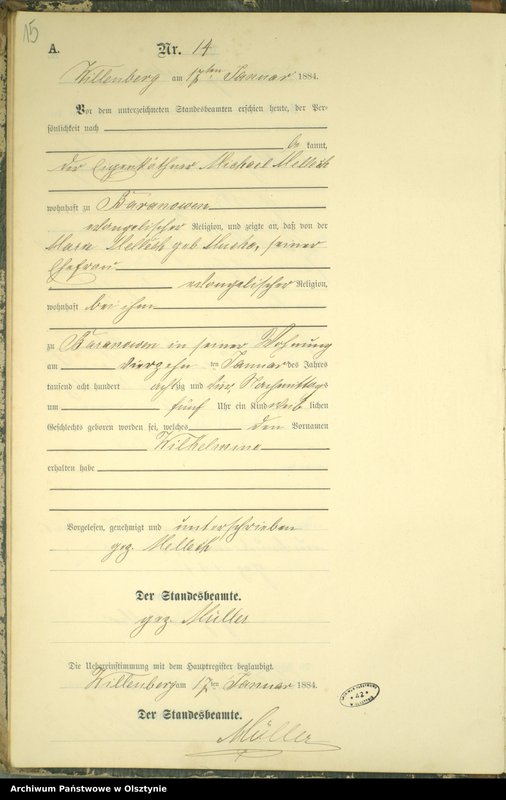 15
A.
Nr. 14
Willenberg am 17ten Januar 1884.
Vor dem unterzeichneten Standesbeamten erschien heute, der Per-
sönlichkeit nach
be kannt,
der Eigenkäthner Michael Mellech
wohnhaft zu Baranowen
evangelischer Religion, und zeigte an, daß von der
Mellech geb. seiner
Ehefrau
evangelischer Religion,
wohnhaft bei ihm
zu Baranowen in seiner Wohnung
am vierzehn ten Januar des Jahres
tausend acht hundert achtzig und vier Nachmittags
um fünf Uhr ein Kind weib lichen
Geschlechts geboren worden sei, welches den Vornamen
Wilhelmine
erhalten habe
Vorgelesen, genehmigt und unterschrieben
gez. Mellech
Der Standesbeamte.
gez. Müller
Die Uebereinstimmung mit dem Hauptregister beglaubigt.
Willenberg am 17ten Januar 1884.
Der Standesbeamte.
Müller
* 42 *
Archiwum Państwowe w Olsztynie